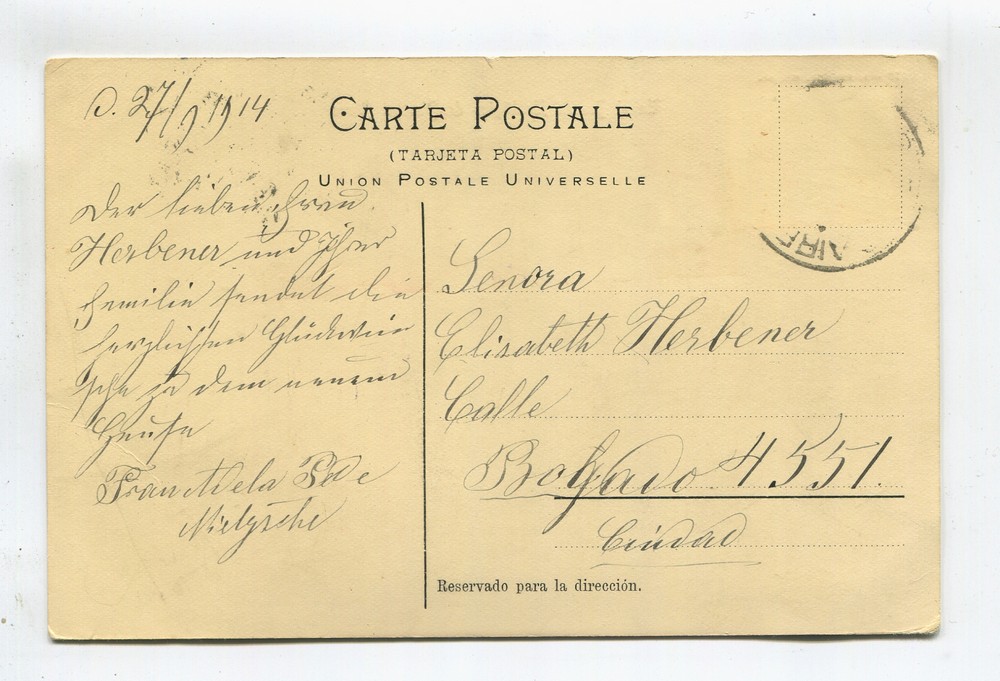 27/9 1914
CARTE POSTALE
(TARJETA POSTAL)
UNION POSTALE UNIVERSELLE
Der lieben Frau
Herbener und Ihrer
Familie sendet die
herzlichsten Glückwün
sche zu dem neuem
Hause
Frau Adela
Nietzsche
Senora
Elisabeth Herbener
Calle
Bolgado 4551.
Ciudad
Reservado para la dirección.
AIRE